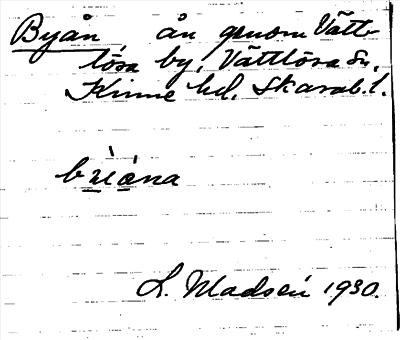 Byån, ån genom Vätt-
lösa by, Vättlösa sn,
Kinne hd. Skarab. l.
L. Madsén 1930.